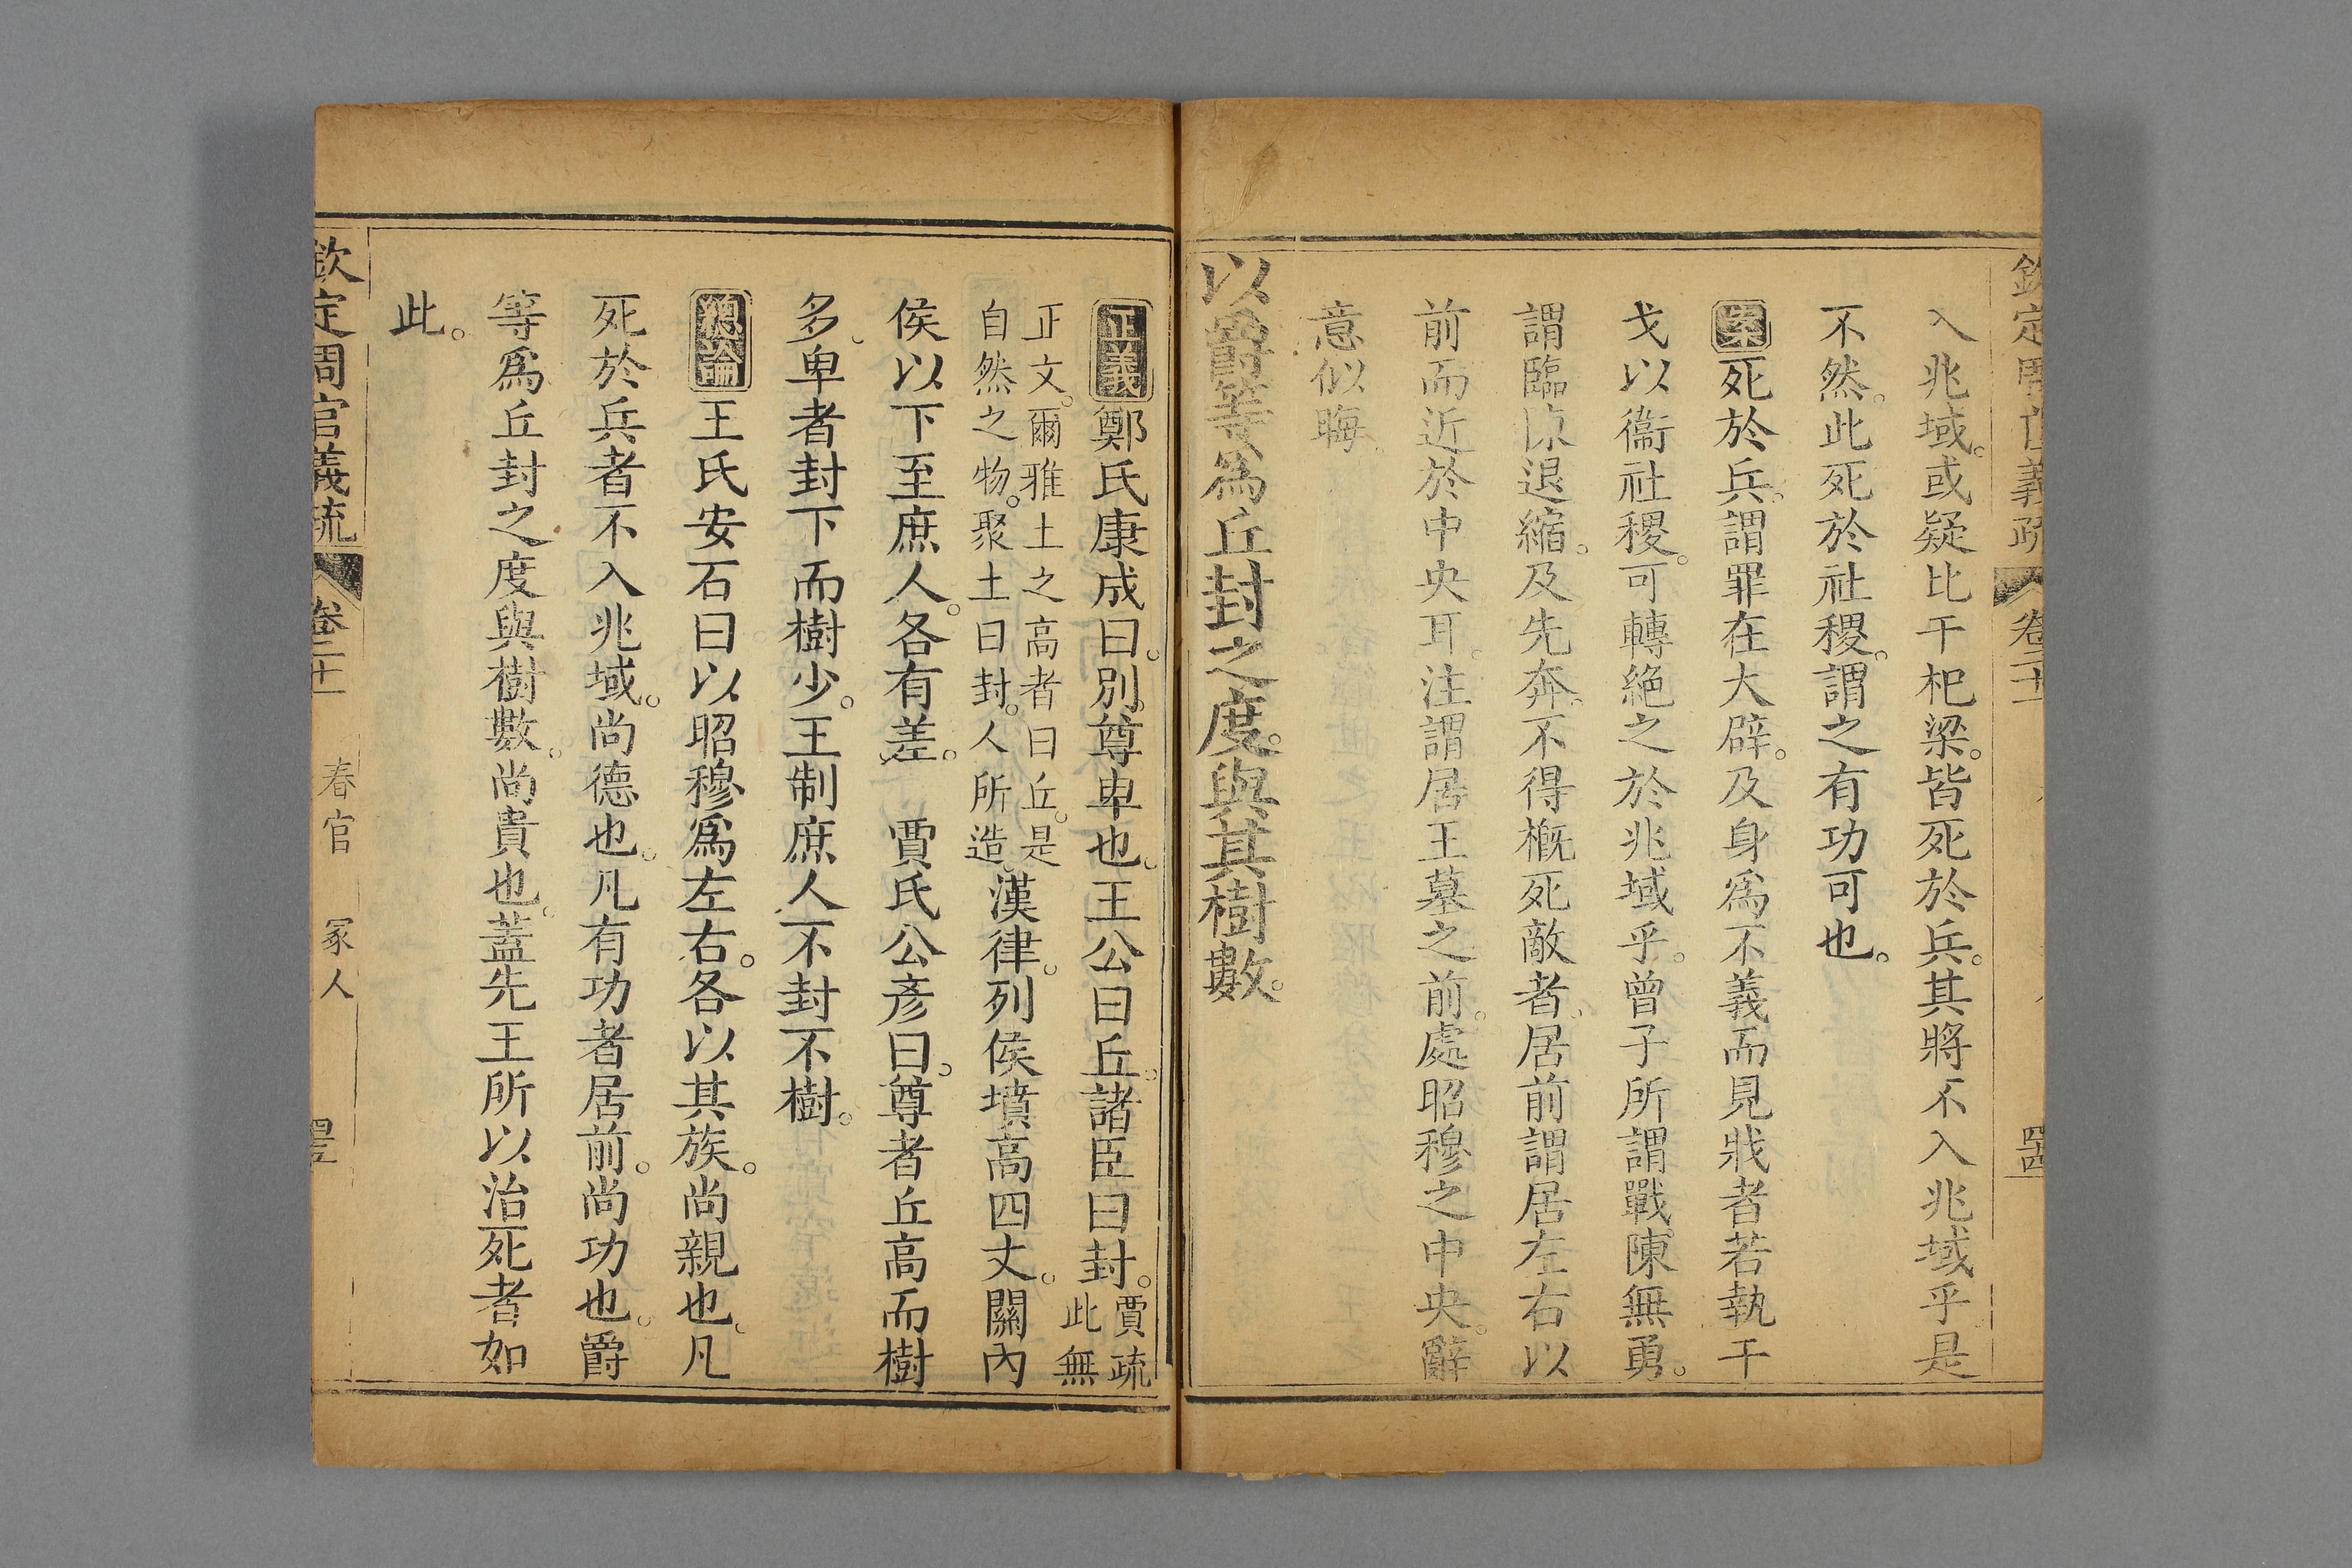 欽定周官義疏 卷二十一 四
入兆域。或疑比干杞梁。皆死於兵。其將不入兆域乎是
不然。此死於社稷。謂之有功可也。
案死於兵。謂罪在大辟。及身爲不義而見戕者若執干
戈以衞社稷。可轉絕之於兆域乎。曾子所謂戰陳無勇。
謂臨涼退縮。及先奔。不得概死敵者。居前謂居左右以
前而近於中央耳。注謂居王墓之前。處昭穆之中央。辭
意似晦
以爵等爲丘封之度。與其樹數。
正義鄭氏康成曰。別尊卑也。王公曰丘。諸臣曰封。賈疏此無
正文。爾雅土之高者曰丘。是自然之物。聚土曰封。人所造。漢律。列侯墳高四丈。關內
侯以下至庶人。各有差。 賈氏公彥曰。尊者丘高而樹
多。卑者封下而樹少。王制庶人不封不樹。
總論王氏安石曰以昭穆爲左右。各以其族。尚親也。凡
死於兵者不入兆域。尚德也。凡有功者居前。尚功也。爵
等爲丘封之度與樹數。尚貴也。蓋先王所以治死者如
此。
欽定周官義疏 卷二十一 春官 冢人